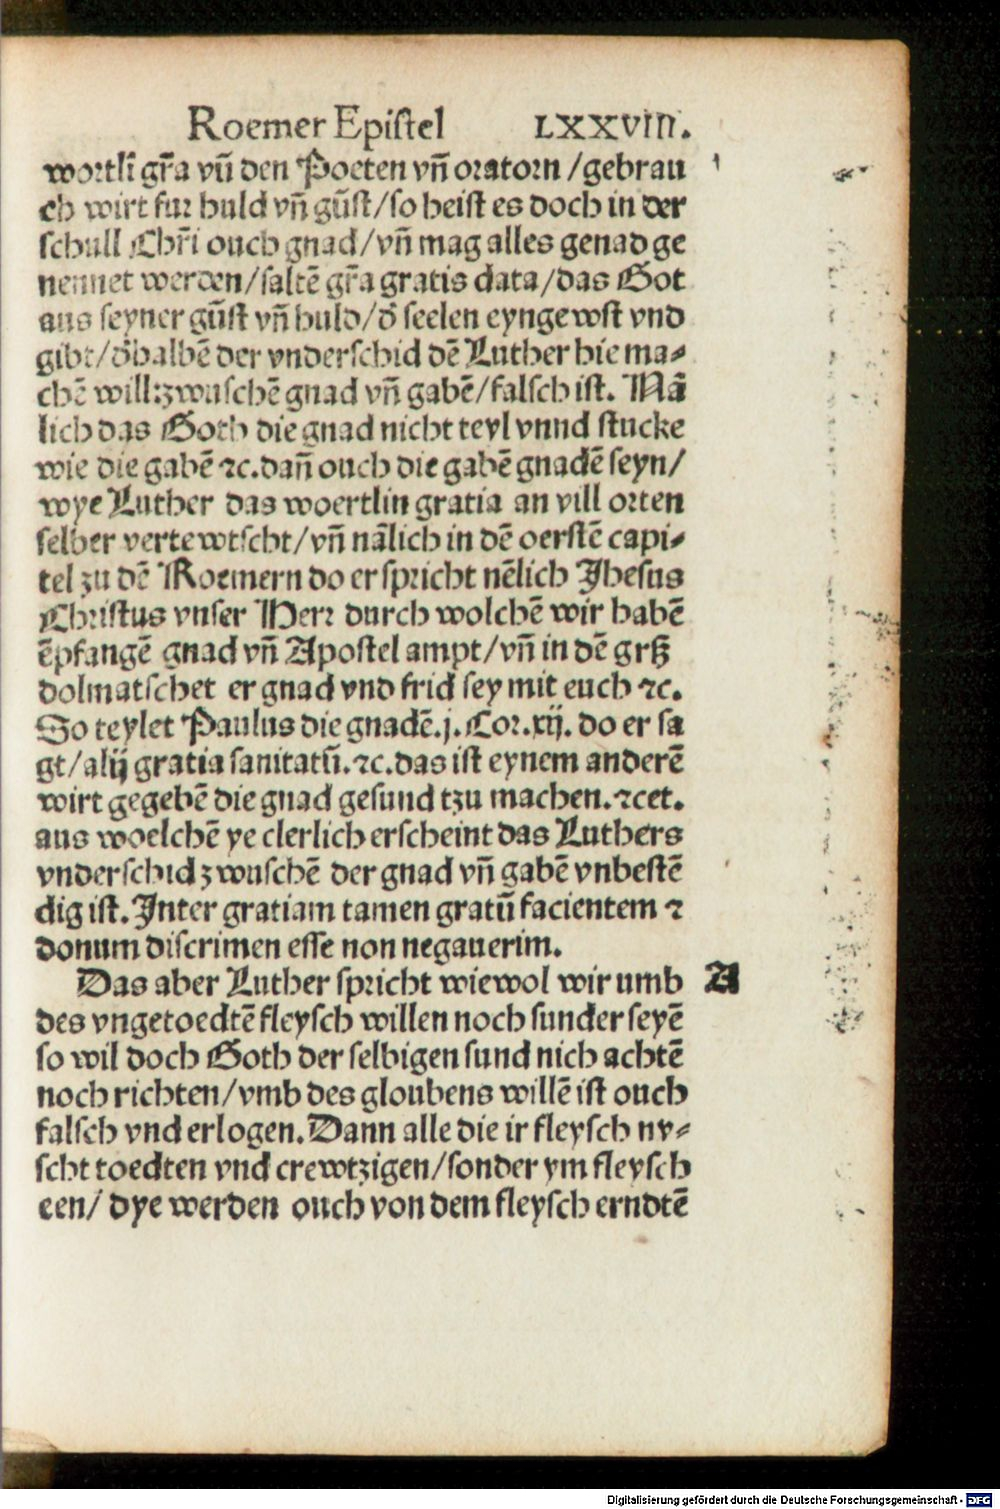 Roemer Epistel LXXVIII.
wortlī gr̄a vñ den Poeten vñ oratorn /gebrau
ch wirt fur huld vñ gūst/so heist es doch in der
schull Chr̄i ouch gnad/vñ mag alles genad ge
nennet werden/saltē gr̄a gratis data/das Got
aus seyner gūst vñ huld/d̄ seelen eyngewst vnd
gibt/d̄halbē der vnderschid dē Luther hie ma⸗
chē will:zwuschē gnad vñ gabē/falsch ist. Nā
lich das Goth die gnad nicht teyl vnnd stucke
wie die gabē ⁊c.dañ ouch die gabē gnadē seyn/
wye Luther das woertlin gratia an vill orten
selber vertewtscht/vñ nālich in dē oerstē capi⸗
tel zu dē Roemern do er spricht nēlich Jhesus
Christus vnser Herr durch wolchē wir habē
ēpfangē gnad vñ Apostel ampt/vñ in dē grß
dolmatschet er gnad vnd frid sey mit euch ⁊c.
So teylet Paulus die gnadē.j.Cor.xij. do er sa
gt/alij gratia sanitatū.⁊c.das ist eynem anderē
wirt gegebē die gnad gesund tzu machen.⁊cet.
aus woelchē ye clerlich erscheint das Luthers
vnderschid zwuschē der gnad vñ gabē vnbestē
dig ist. Inter gratiam tamen gratū facientem ⁊
donum discrimen esse non negauerim.
Das aber Luther spricht wiewol wir umb A
des vngetoedtē fleysch willen noch sunder seyē
so wil doch Goth der selbigen sund nich achtē
noch richten/vmb des gloubens willē ist ouch
falsch vnd erlogen. Dann alle die ir fleysch ny⸗
scht toedten vnd crewtzigen/sonder ym fleysch
een/ dye werden ouch von dem fleysch erndtē
Digitalisierung gefördert durch die Deutsche Forschungsgemeinschaft - DFG